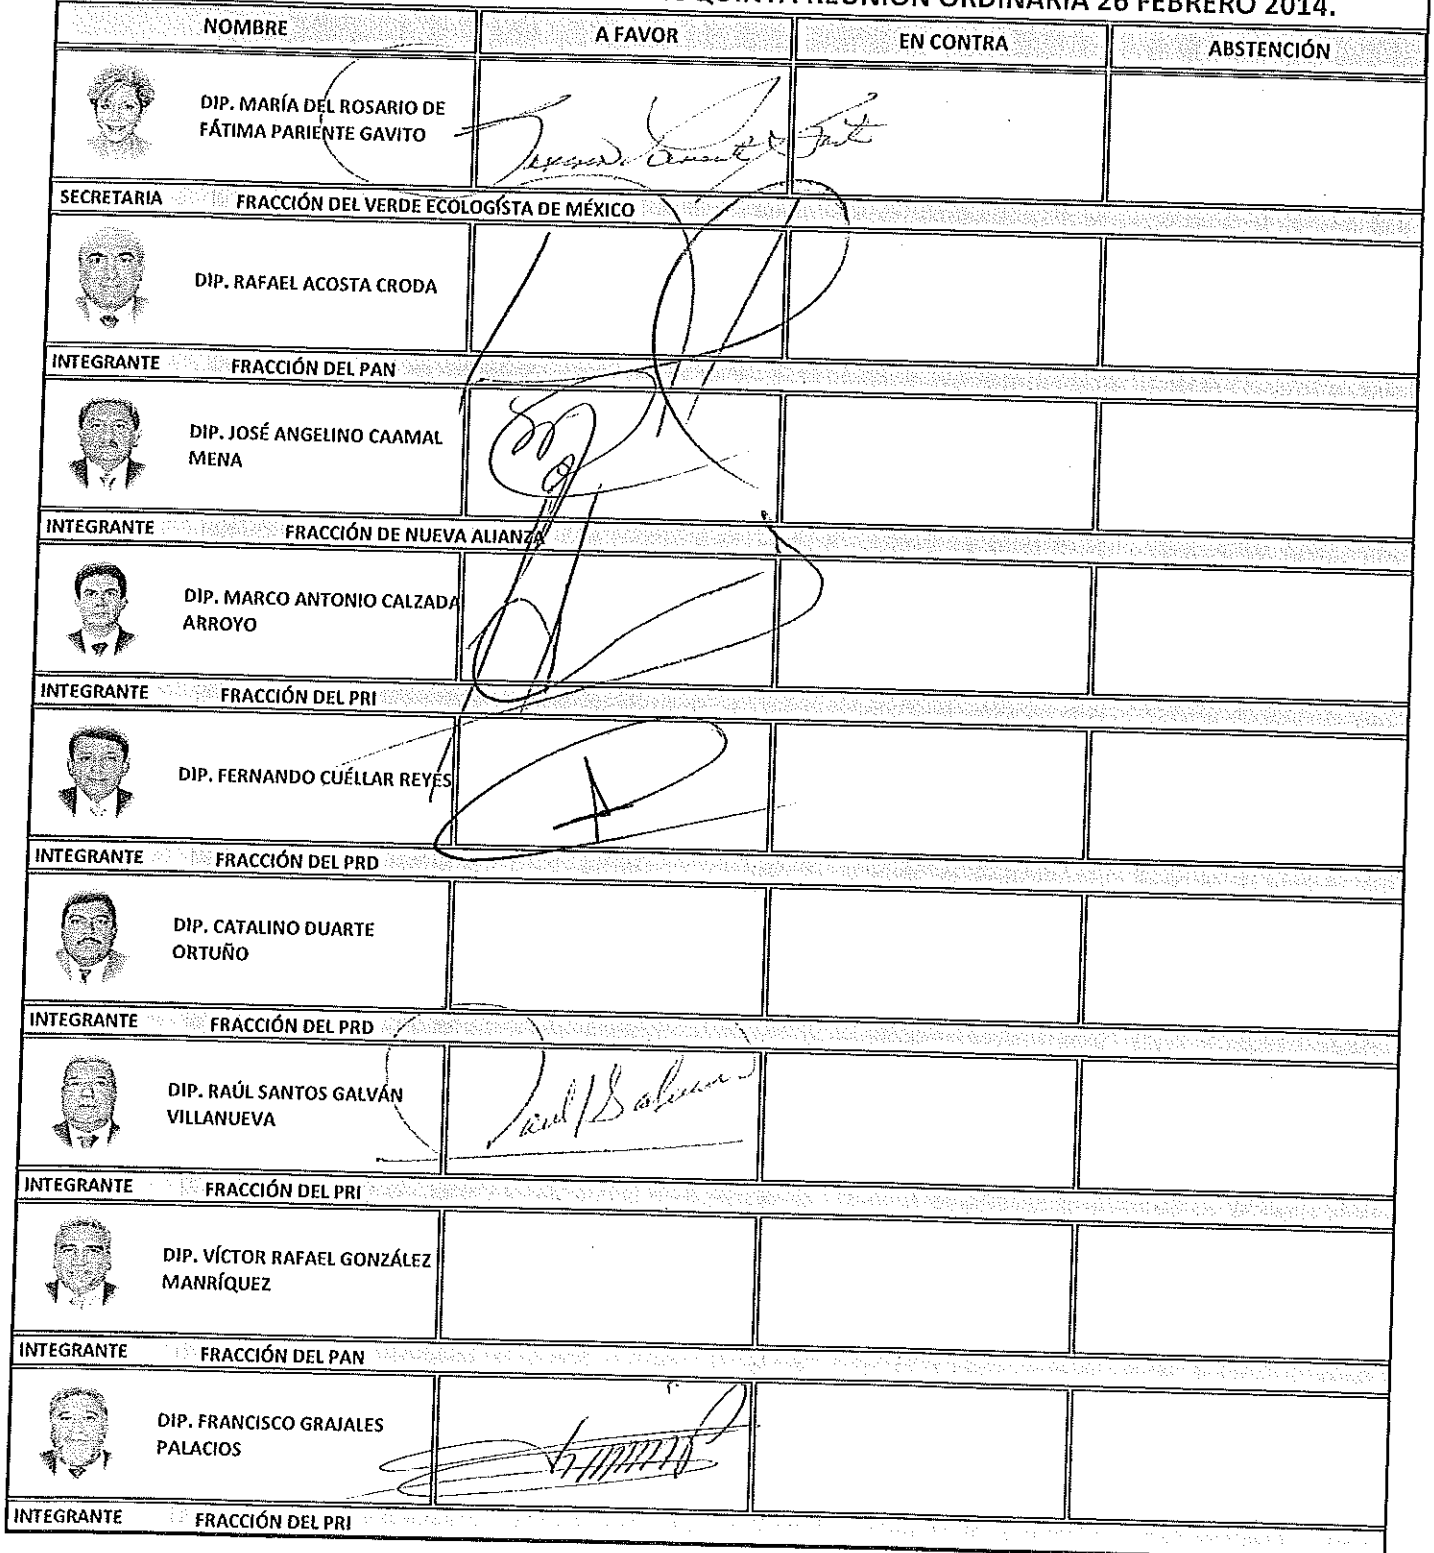 QUINTA REUNIÓN ORDINARIA 26 FEBRERO 2014.
NOMBRE A FAVOR EN CONTRA ABSTENCIÓN
DIP. MARÍA DEL ROSARIO DE
FÁTIMA PARIENTE GAVITO
SECRETARIA FRACCIÓN DEL VERDE ECOLOGÍSTA DE MÉXICO
DIP. RAFAEL ACOSTA CRODA
INTEGRANTE FRACCIÓN DEL PAN
DIP. JOSÉ ANGELINO CAAMAL
MENA
INTEGRANTE FRACCIÓN DE NUEVA ALIANZA
DIP. MARCO ANTONIO CALZADA
ARROYO
INTEGRANTE FRACCIÓN DEL PRI
DIP. FERNANDO CUÉLLAR REYES
INTEGRANTE FRACCIÓN DEL PRD
DIP. CATALINO DUARTE
ORTUÑO
INTEGRANTE FRACCIÓN DEL PRD
DIP. RAÚL SANTOS GALVÁN
VILLANUEVA
INTEGRANTE FRACCIÓN DEL PRI
DIP. VÍCTOR RAFAEL GONZÁLEZ
MANRÍQUEZ
INTEGRANTE FRACCIÓN DEL PAN
DIP. FRANCISCO GRAJALES
PALACIOS
INTEGRANTE FRACCIÓN DEL PRI